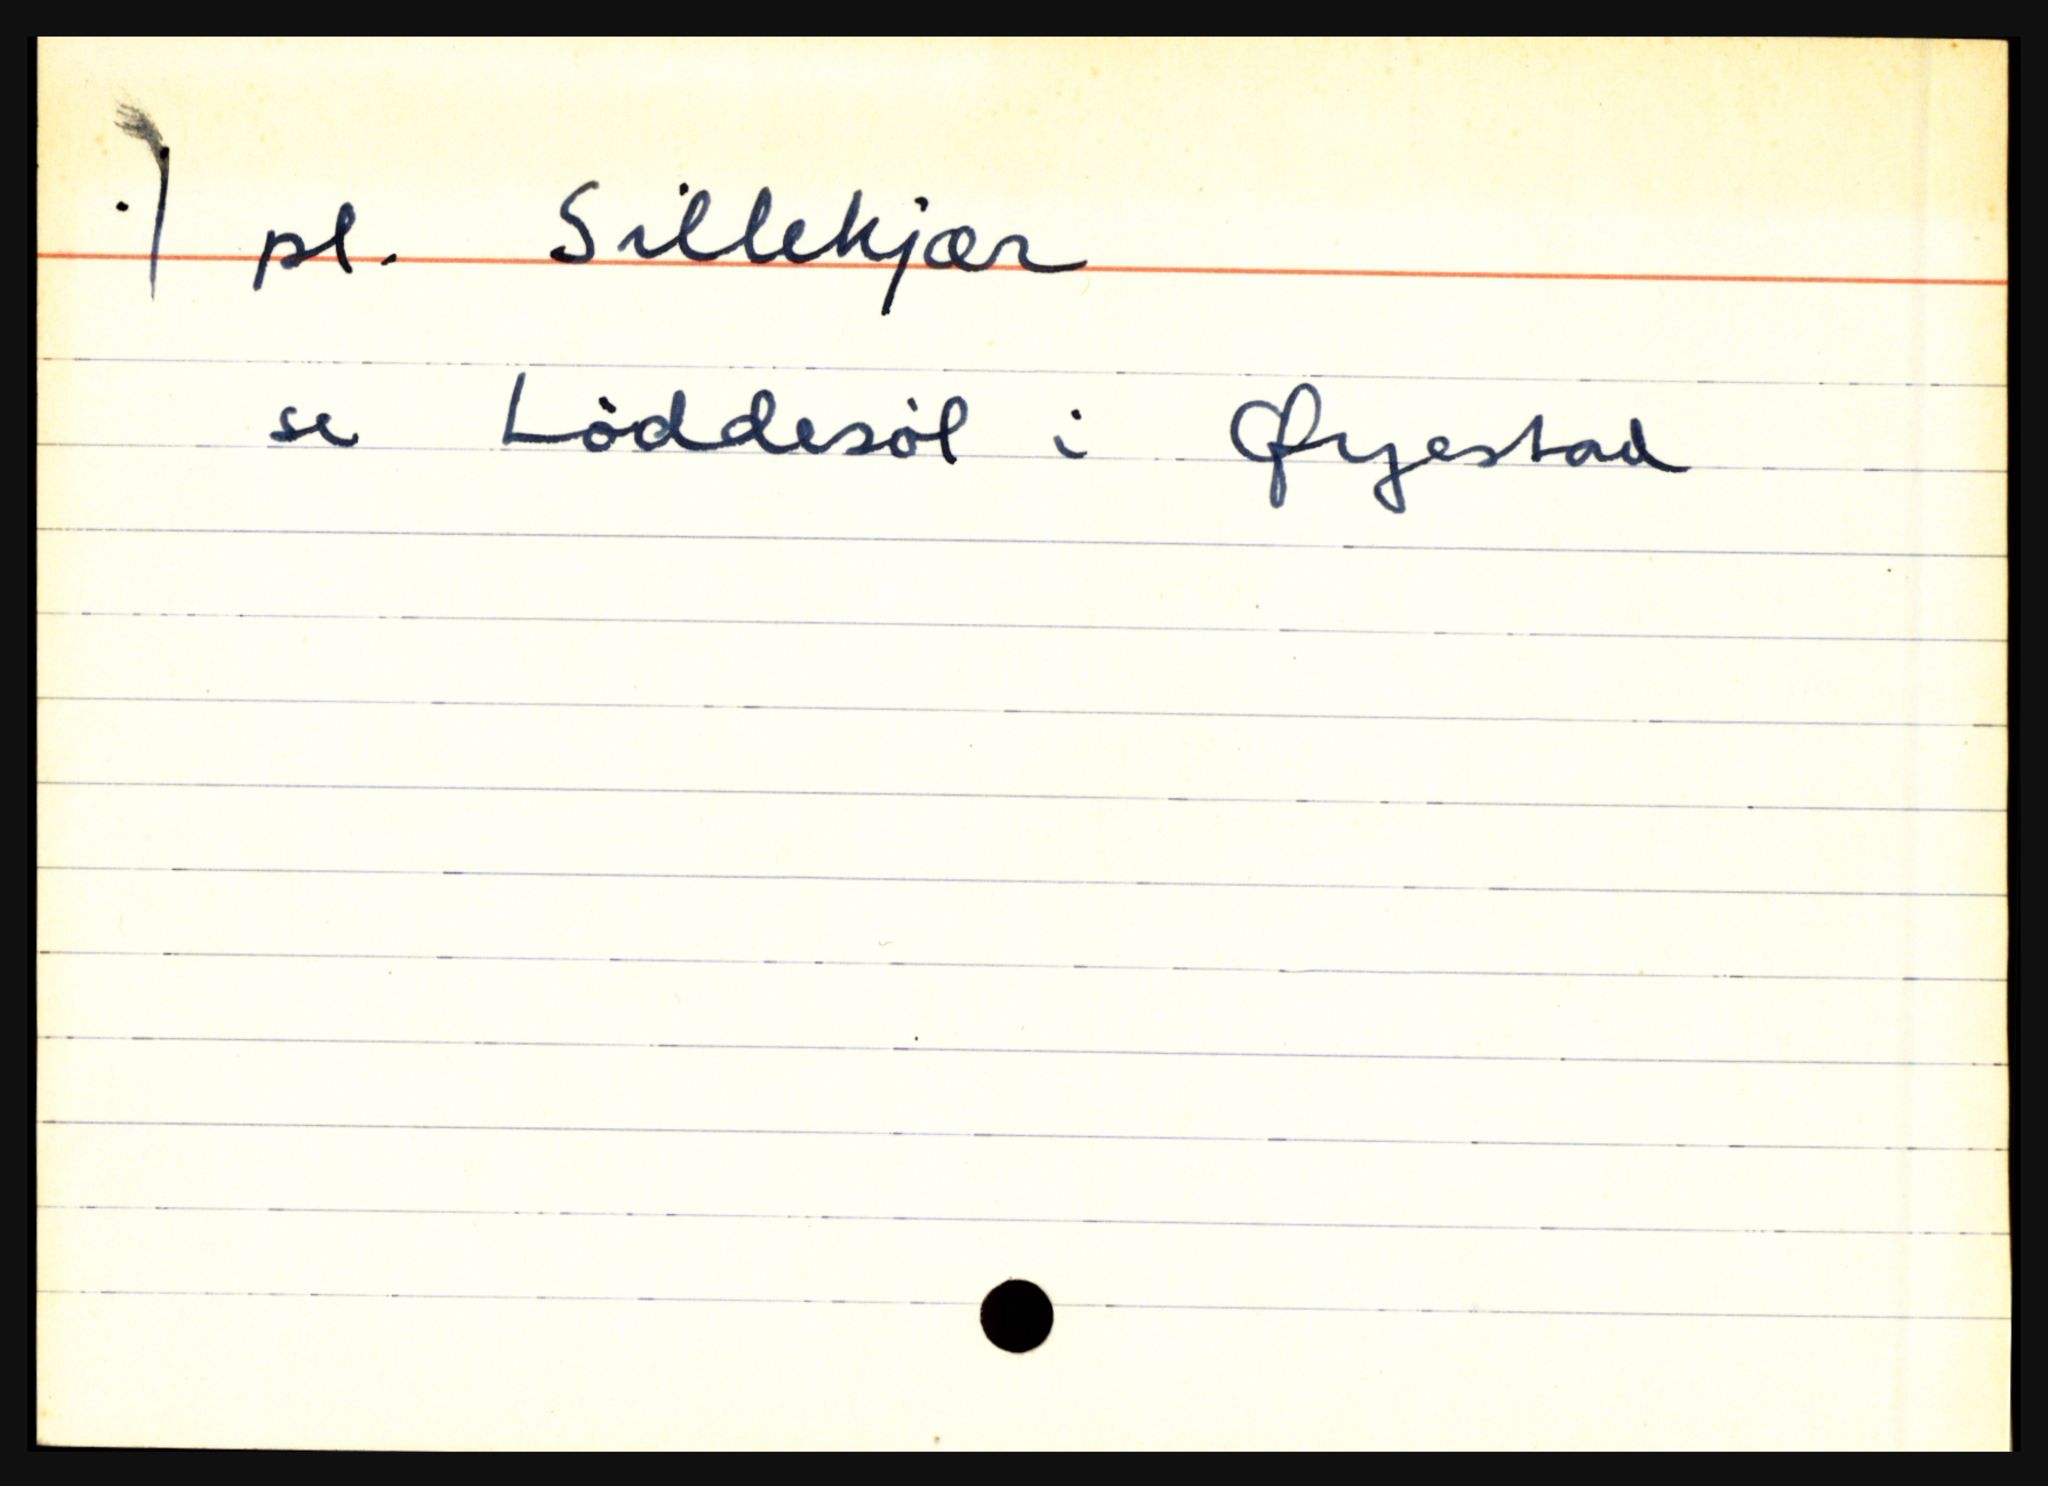 ·/ pl. Sillekjær
se Löddesöl i Øyestad